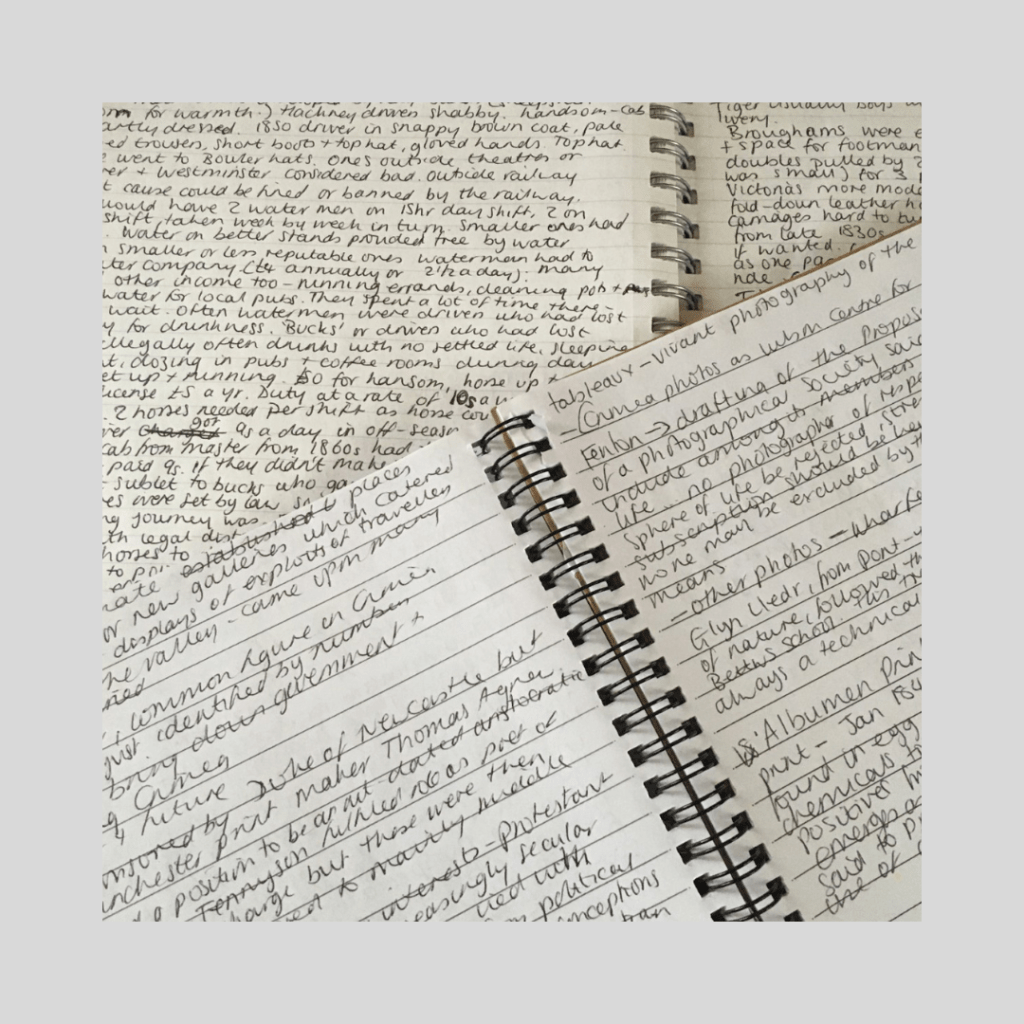 for warmth.) Hackney drivers shabby. handsom-cab
artly dressed. 1850 driver in snappy brown coat, pale
ed trousers, short boots + top hat, gloved hands. Top hat
went to Bowler hats. Ones outside theatres or
er + Westminster considered bad. outside railway
t cause could be hired or banned by the railway.
would have 2 water men on 15hr day shift, 2 on
shift, taken week by week in turn. smaller ones had
. Water on better stands provided free by water
n smaller or less reputable ones waterman had to
ter company (£4 annually or 2½ a day). many
other income too - running errands, cleaning pots +
water for local pubs. They spent a lot of time there -
wait. Often watermen were drivers who had lost
y for drunkness. 'Bucks' or drivers who had lost
illegally often drunks with no settled life, sleeping
t, dozing in pubs + coffee rooms during day
et up + running. £50 for hansom, horse up +
license £5 a yr. Duty at a rate of 10s a
. 2 horses needed per shift as horse cou
ver charged got as a day in off-season
cab from master from 1860s had
paid 9s. if they didn't mak
- sublet to bucks who ga
es were set by law, sn
ng journey was
th legal dist
horses to
to pri
Tiger usually boys w
wery.
Broughams were e
+ space for footman
doubles pulled by 2
was small) for 3 p
Victorias more mode
fold-down leather h
carriages hard to bu
from late 1830s
if wanted.
as one pa
ride
established to places
or new galleries which catered
displays of exploits of travellers
he valley - came upon many
ned
, common figure in Crimea
just identified by number
bring down government +
Crimea
+ future Duke of Newcastle but
onsored by print maker Thomas Agnew
nchester
position to be an out dated aristocratic
Tennyson fulfilled ideas part of
harge but these were then
to mainly middle
interests - protestant
easingly secular
ued with
political
onceptions
ran
tableaux-vivant photography of the
- (Crimea photos as wbm centre for
Fenton → drafting of the Propos
of a photographical society said
include amongst members
life... no photographer of respe
sphere of life be rejected, stre
subscription should be low
no one man be excluded by
means
- other photos - wharfe
Glyn Lledr, from Pont-y
of nature, followed th
Bettws school. This
always a technical
Albumen Prin
print - Jan 18
found in egg
chemicals
positive
emerges a
said to pr
the of